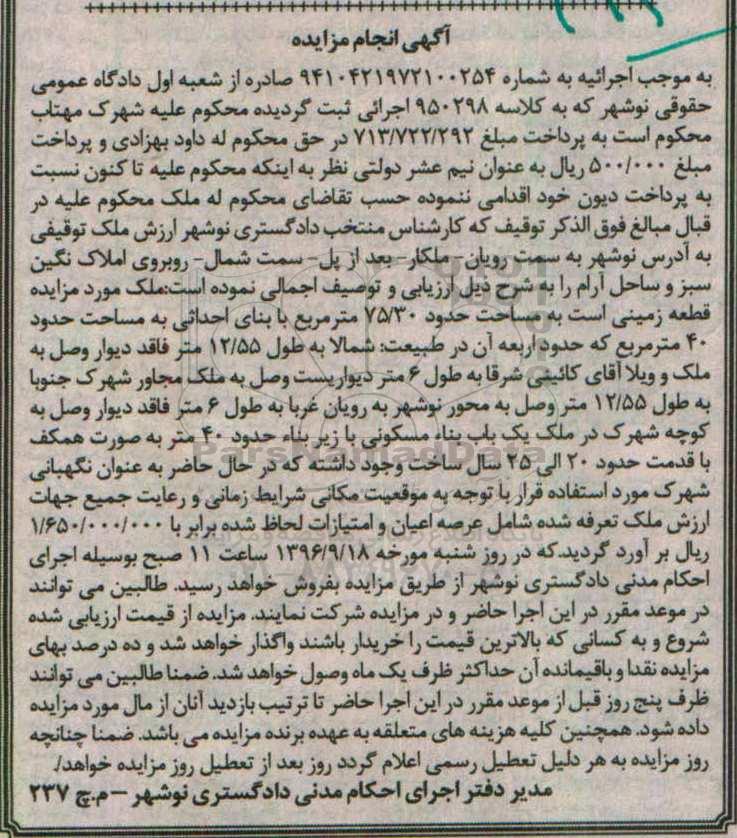 آگهی انجام مزایده
به موجب اجرائیه به شماره ۹۴۱۰۴۲۱۹۷۲۱۰۰۲۵۴ صادره از شعبه اول دادگاه عمومی
حقوقی نوشهر که به کلاسه ۹۵۰۲۹۸ اجرائی ثبت گردیده محکوم علیه شهرک مهتاب
محکوم است به پرداخت مبلغ ۷۱۳/۷۲۲/۲۹۲ در حق محکوم له داود بهزادی و پرداخت
مبلغ ۵۰۰/۰۰۰ ریال به عنوان نیم عشر دولتی نظر به اینکه محکوم علیه تا کنون نسبت
به پرداخت دیون خود اقدامی ننموده حسب تقاضای محکوم له ملک محکوم علیه در
قبال مبالغ فوق الذکر توقیف که کارشناس منتخب دادگستری نوشهر ارزش ملک توقیفی
به آدرس نوشهر به سمت رویان- ملکار- بعد از پل- سمت شمال- روبروی املاک نگین
سبز و ساحل آرام را به شرح ذیل ارزیابی و توصیف اجمالی نموده است:ملک مورد مزایده
قطعه زمینی است به مساحت حدود ۷۵/۳۰ مترمربع با بنای احداثی به مساحت حدود
۴۰ مترمربع که حدود اربعه آن در طبیعت: شمالا به طول ۱۲/۵۵ متر فاقد دیوار وصل به
ملک و ویلا آقای کائینی شرقا به طول ۶ متر دیواریست وصل به ملک مجاور شهرک جنوبا
به طول ۱۲/۵۵ متر وصل به محور نوشهر به رویان غربا به طول ۶ متر فاقد دیوار وصل به
کوچه شهرک در ملک یک باب بناء مسکونی با زیر بناء حدود ۴۰ متر به صورت همکف
با قدمت حدود ۲۰ الی ۲۵ سال ساخت وجود داشته که در حال حاضر به عنوان نگهبانی
شهرک مورد استفاده قرار با توجه به موقعیت مکانی شرایط زمانی و رعایت جمیع جهات
ارزش ملک تعرفه شده شامل عرصه اعیان و امتیازات لحاظ شده برابر با ۱/۶۵۰/۰۰۰/۰۰۰
ریال بر آورد گردید.که در روز شنبه مورخه ۱۳۹۶/۹/۱۸ ساعت ۱۱ صبح بوسیله اجرای
احکام مدنی دادگستری نوشهر از طریق مزایده بفروش خواهد رسید. طالبین می توانند
در موعد مقرر در این اجرا حاضر و در مزایده شرکت نمایند. مزایده از قیمت ارزیابی شده
شروع و به کسانی که بالاترین قیمت را خریدار باشند واگذار خواهد شد و ده درصد بهای
مزایده نقدا و باقیمانده آن حداکثر ظرف یک ماه وصول خواهد شد. ضمنا طالبین می توانند
ظرف پنج روز قبل از موعد مقرر در این اجرا حاضر تا ترتیب بازدید آنان از مال مورد مزایده
داده شود. همچنین کلیه هزینه های متعلقه به عهده برنده مزایده می باشد. ضمنا چنانچه
روز مزایده به هر دلیل تعطیل رسمی اعلام گردد روز بعد از تعطیل روز مزایده خواهد/.
مدیر دفتر اجرای احکام مدنی دادگستری نوشهر – م.چ ۲۳۷
ParsNamadData